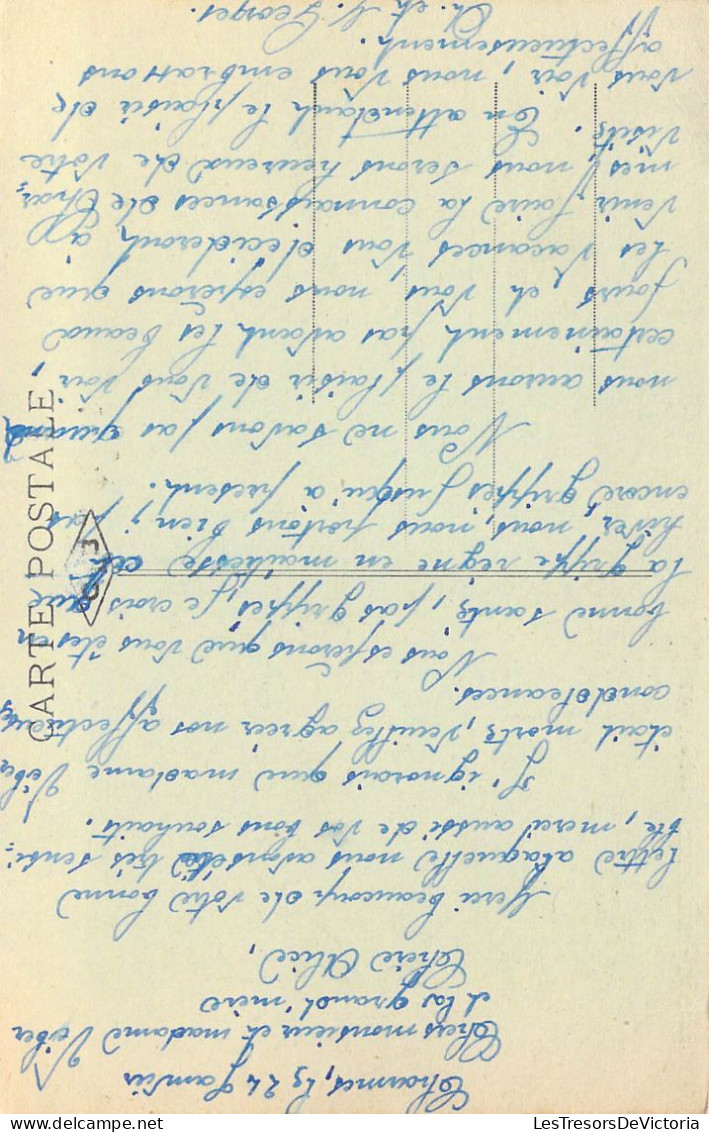 Charmes, le 24 Janvier
Chers monsieur et madame Véber
et la grand'mère
Chère Alice,
Merci beaucoup de votre bonne
lettre a laquelle nous avons été très sensi-
ble, merci aussi de vos bons souhaits.
J'ignorais que madame Véber
était morte, veuillez agréer nos affectueuses
condoléances.
Nous espérons que vous êtes en
bonne santé, pas grippés, je crois que
la grippe règne en maitesse cet
hiver, nous, nous portons bien, pas
encore grippés jusqu'a présent.
Nous ne savons pas quand
nous aurons le plaisir de vous voir,
certainement pas avant les beaux
jours et, vous, nous espérons que
les vacances vous décideront à
venir faire la connaissances de Char-
mes, nous serons heureux de votre
visite. En attendant le plaisir de
vous voir, nous vous embrassons
affectueusement.
Ch. et M. Georges
CARTE POSTALE
LesTresorsDeVictoria
delcampe.net